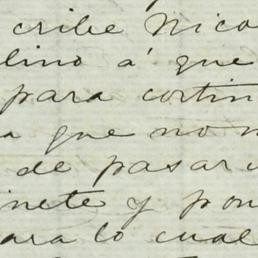 cribe Nico
lino á que
para cortin
a que no n
de pasar
inete y pon
para lo cual